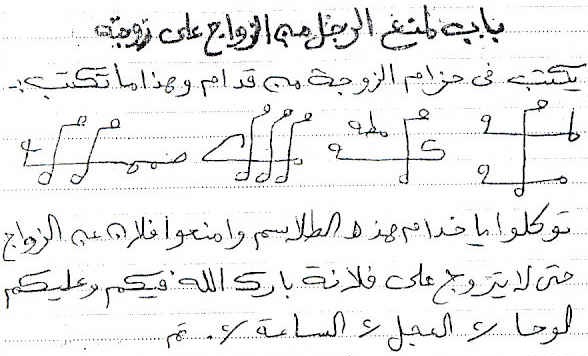 باب لمنع الرجل من الزواج على زوجته
يكتب فى حزام الزوجة من قدام وهذا ما تكتب :-
توكلوا يا خدام هذه الطلاسم وامنعوا فلان عن الزواج
حتى لا يتزوج على فلانة بارك الله فيكم وعليكم
الوحا ٢ العجل ٢ الساعة ٢. تم